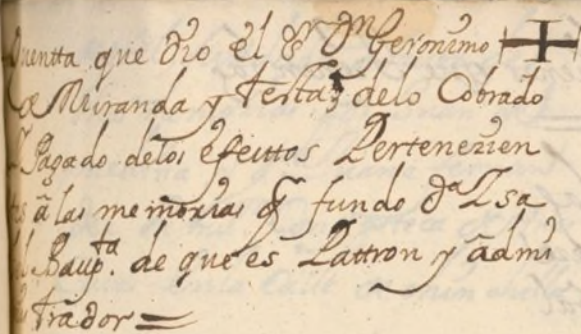 Quentta que dio el Sr Dn Geronimo
de Miranda y Testa de lo Cobrado
y Pagado de los efecttos Pertenezien
tes a las memorias q fundo Da Isa
bel Baupta. de que es Pattron y admi
trador =